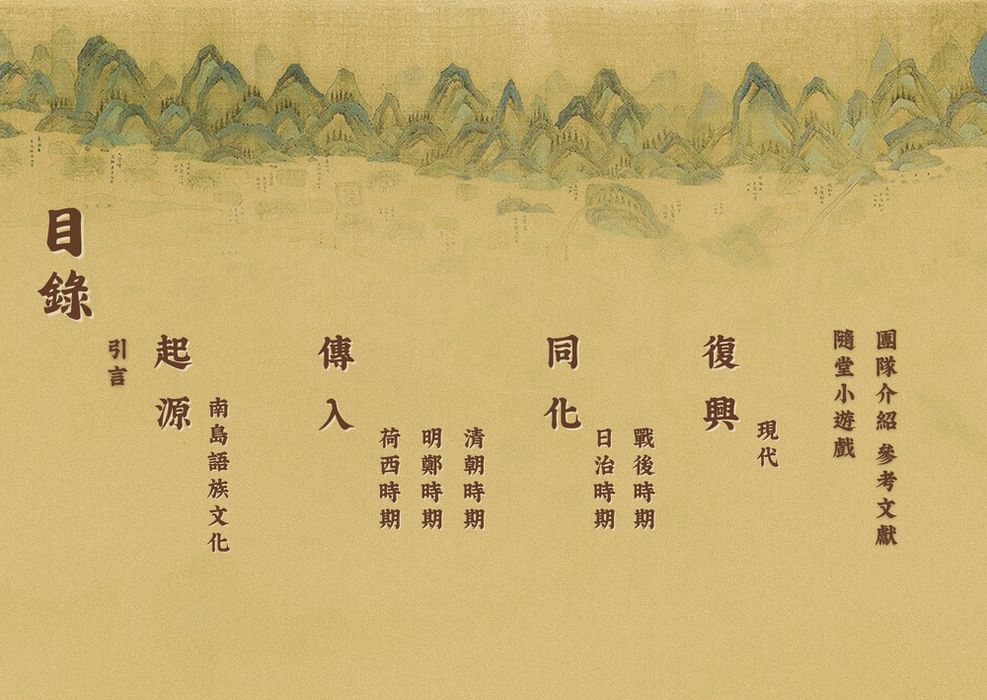 目錄
引言
起源
南島語族文化
傳入
荷西時期
明鄭時期
清朝時期
同化
日治時期
戰後時期
復興
現代
隨堂小遊戲
團隊介紹 參考文獻